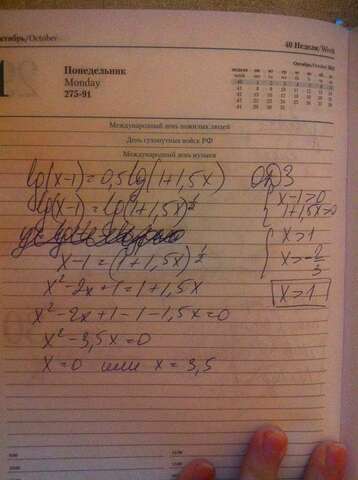 октябрь/October
40 Неделя/Week
Понедельник
Monday
275-91
Международный день пожилых людей
День сухопутных войск РФ
Международный день музыки
lg(x-1)=0,5lg(1+1,5x)
ОДЗ
lg(x-1)=lg(1+1,5x)^½
{x-1>0
1+1,5x>0
x-1=(1+1,5x)^½
{x>1
x>-2/3
x²-2x+1=1+1,5x
x>1
x²-2x+1-1-1,5x=0
x²-3,5x=0
x=0 или x=3,5